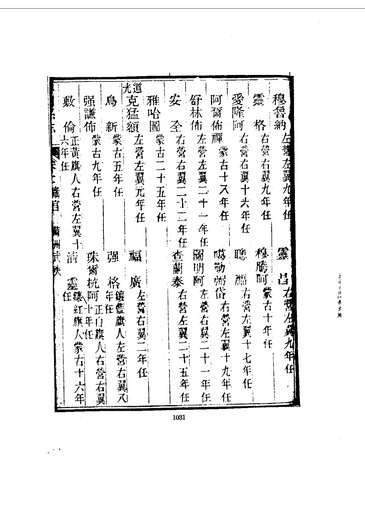 穆魯納 左營左翼九年任
靈昌 右營左翼九年任
靈格 右營右翼九年任
穆騰阿 蒙古十年任
愛隆阿 右營右翼十六年任
聰 右營左翼十七年任
阿爾佈 蒙古十八年任
右營右翼十九年任
舒林佈 左營左翼二十一年任
圖明阿 左營右翼二十一年任
安全 右營右翼二十二年任
查蘭泰 右營左翼二十五年任
雅哈圖 蒙古二十五年任
道光
克猛額 左營左翼元年任
福廣 左營右翼二年任
烏新 蒙古五年任
强格 鑲藍旗人左營右翼八年任
强謙佈 蒙古九年任
珠爾杭阿 正白旗人右營右翼十年任
數倫 正黃旗人右營左翼十六年任
清靈 鑲紅旗人蒙古十六年任
1081